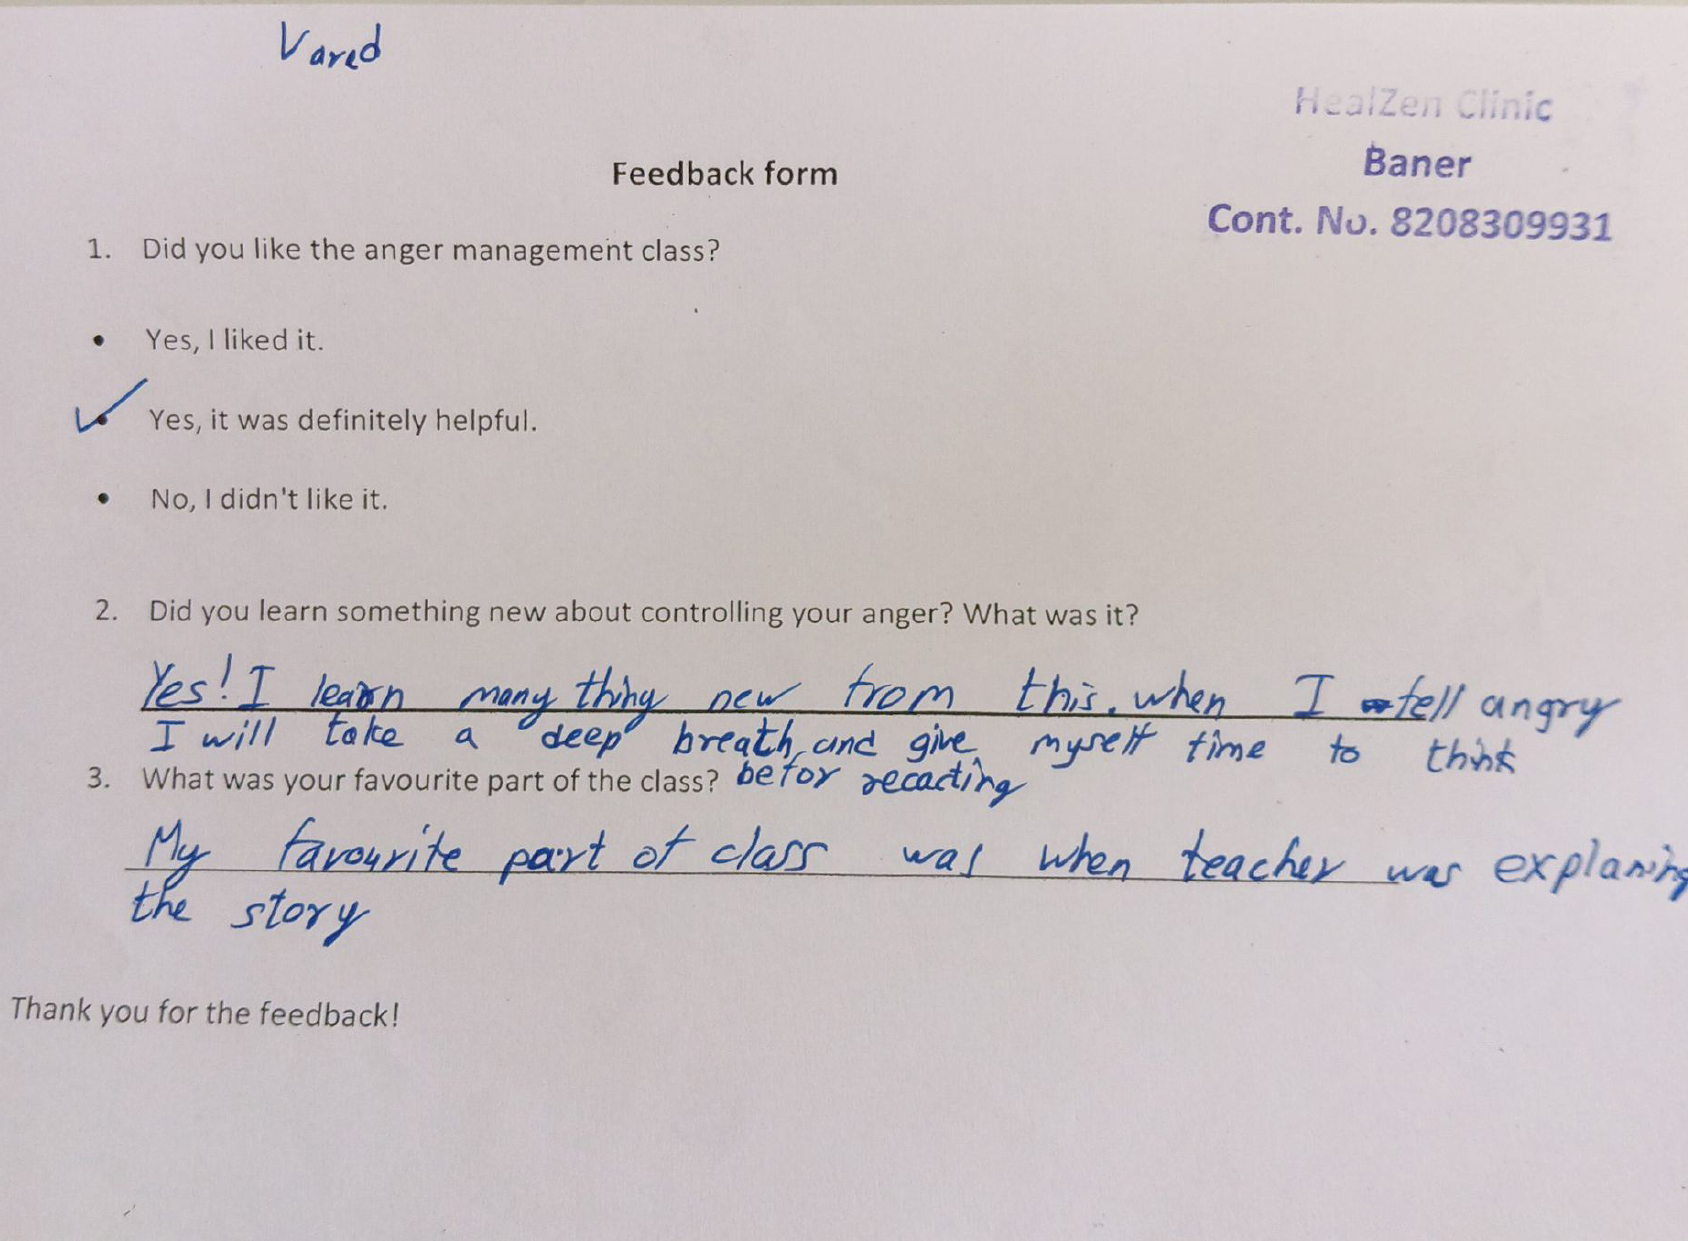 Vared
HealZen Clinic
Baner
Cont. No. 8208309931
Feedback form
1. Did you like the anger management class?
• Yes, I liked it.
✓ • Yes, it was definitely helpful.
• No, I didn't like it.
2. Did you learn something new about controlling your anger? What was it?
Yes! I learn many thing new from this. when I fell angry
I will take a deep breath, and give myself time to think
befor recacting
3. What was your favourite part of the class?
My favourite part of class was when teacher was explaning
the story
Thank you for the feedback!